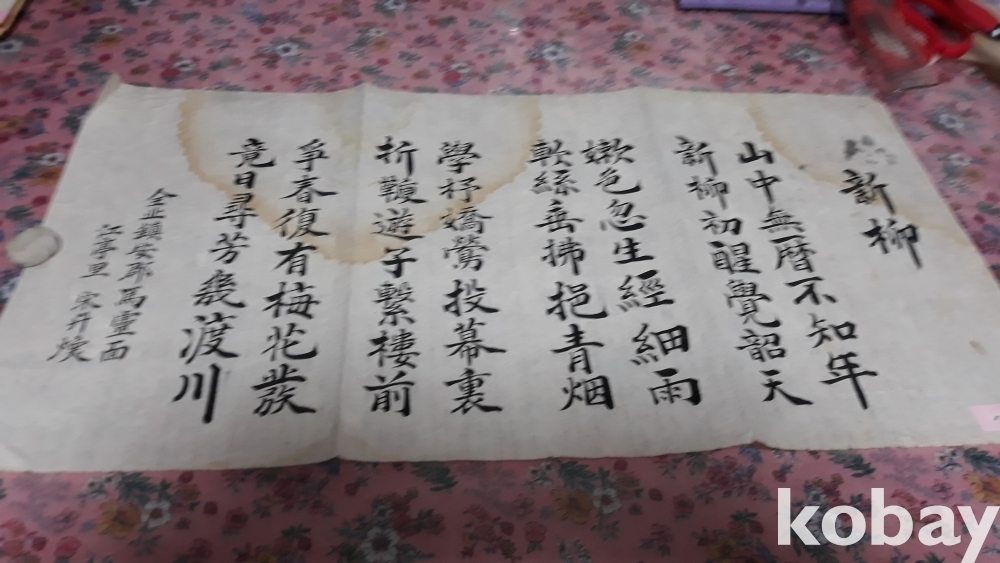 新柳
山中無曆不知年
新柳初醒覺韶天
嫩色忽生經細雨
軟絲垂拂挹青烟
學杼嬌鶯投幕裏
折鞭遊子繫樓前
爭春復有梅花蔟
竟日尋芳幾渡川
全北鎭安郡馬靈面
江亭里 宋升煥
kobay